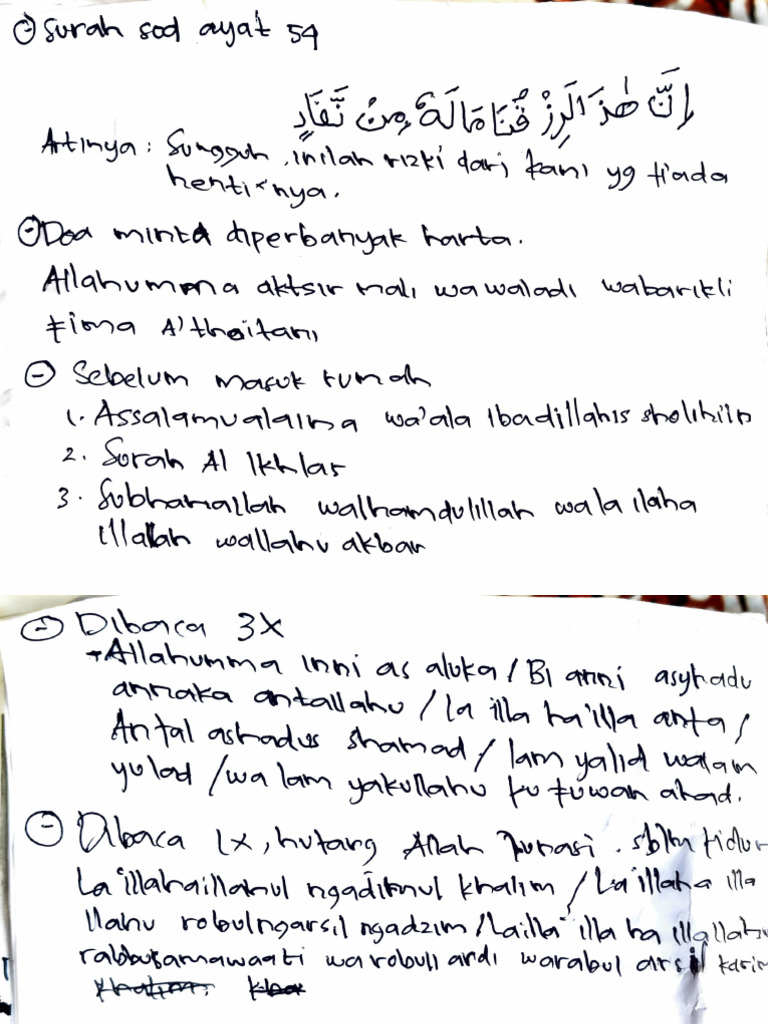 Surah sod ayat 54
اِنَّ هٰذَا لَرِزْقُنَا مَالَهٗ مِنْ نَّفَادٍ
Artinya : Sungguh, inilah rizki dari kami yg tiada
henti²nya.
Doa minta diperbanyak harta.
Allahumma aktsir mali wawaladi wabarikli
fima A'thoitani
Sebelum masuk rumah
1. Assalamualaina wa'ala ibadillahis sholihiin
2. Surah Al Ikhlas
3. Subhanallah walhamdulillah wala ilaha
illallah wallahu akbar
Dibaca 3X
Allahumma inni as aluka / Bi anni asyhadu
annaka antallahu / la illa ha'illa anta /
Antal ashadus shamad / lam yalid walam
yulad / wa lam yakullahu ku fuwan ahad.
Dibaca 1x, hutang Allah lunasi. sblm tidur
La'illahaillahul ngadimul khalim / La'illaha illa
llahu robulngarsil ngadzim / Lailla'illa ha illallahu
rabbusamawaati warobull ardi warabul arsil karim